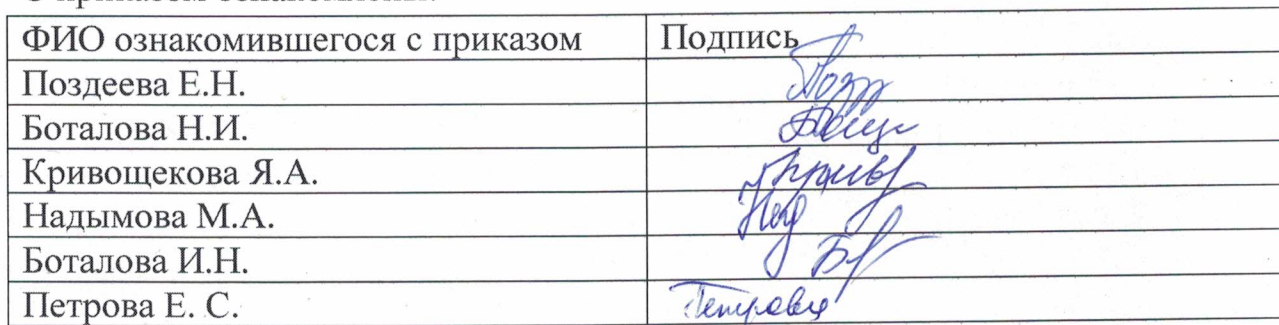 ФИО ознакомившегося с приказом Подпись
Поздеева Е.Н.
Боталова Н.И.
Кривощекова Я.А.
Надымова М.А.
Боталова И.Н.
Петрова Е. С. Петрова